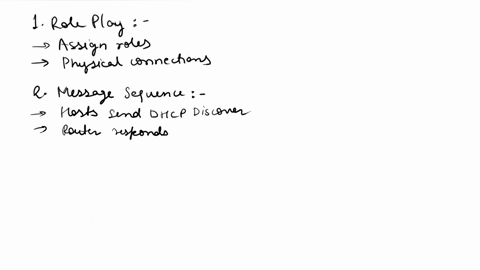 1. Role Play :-
→ Assign roles
→ Physical connections
2. Message Sequence :-
→ Hosts Send DHCP Discover
→ Router responds